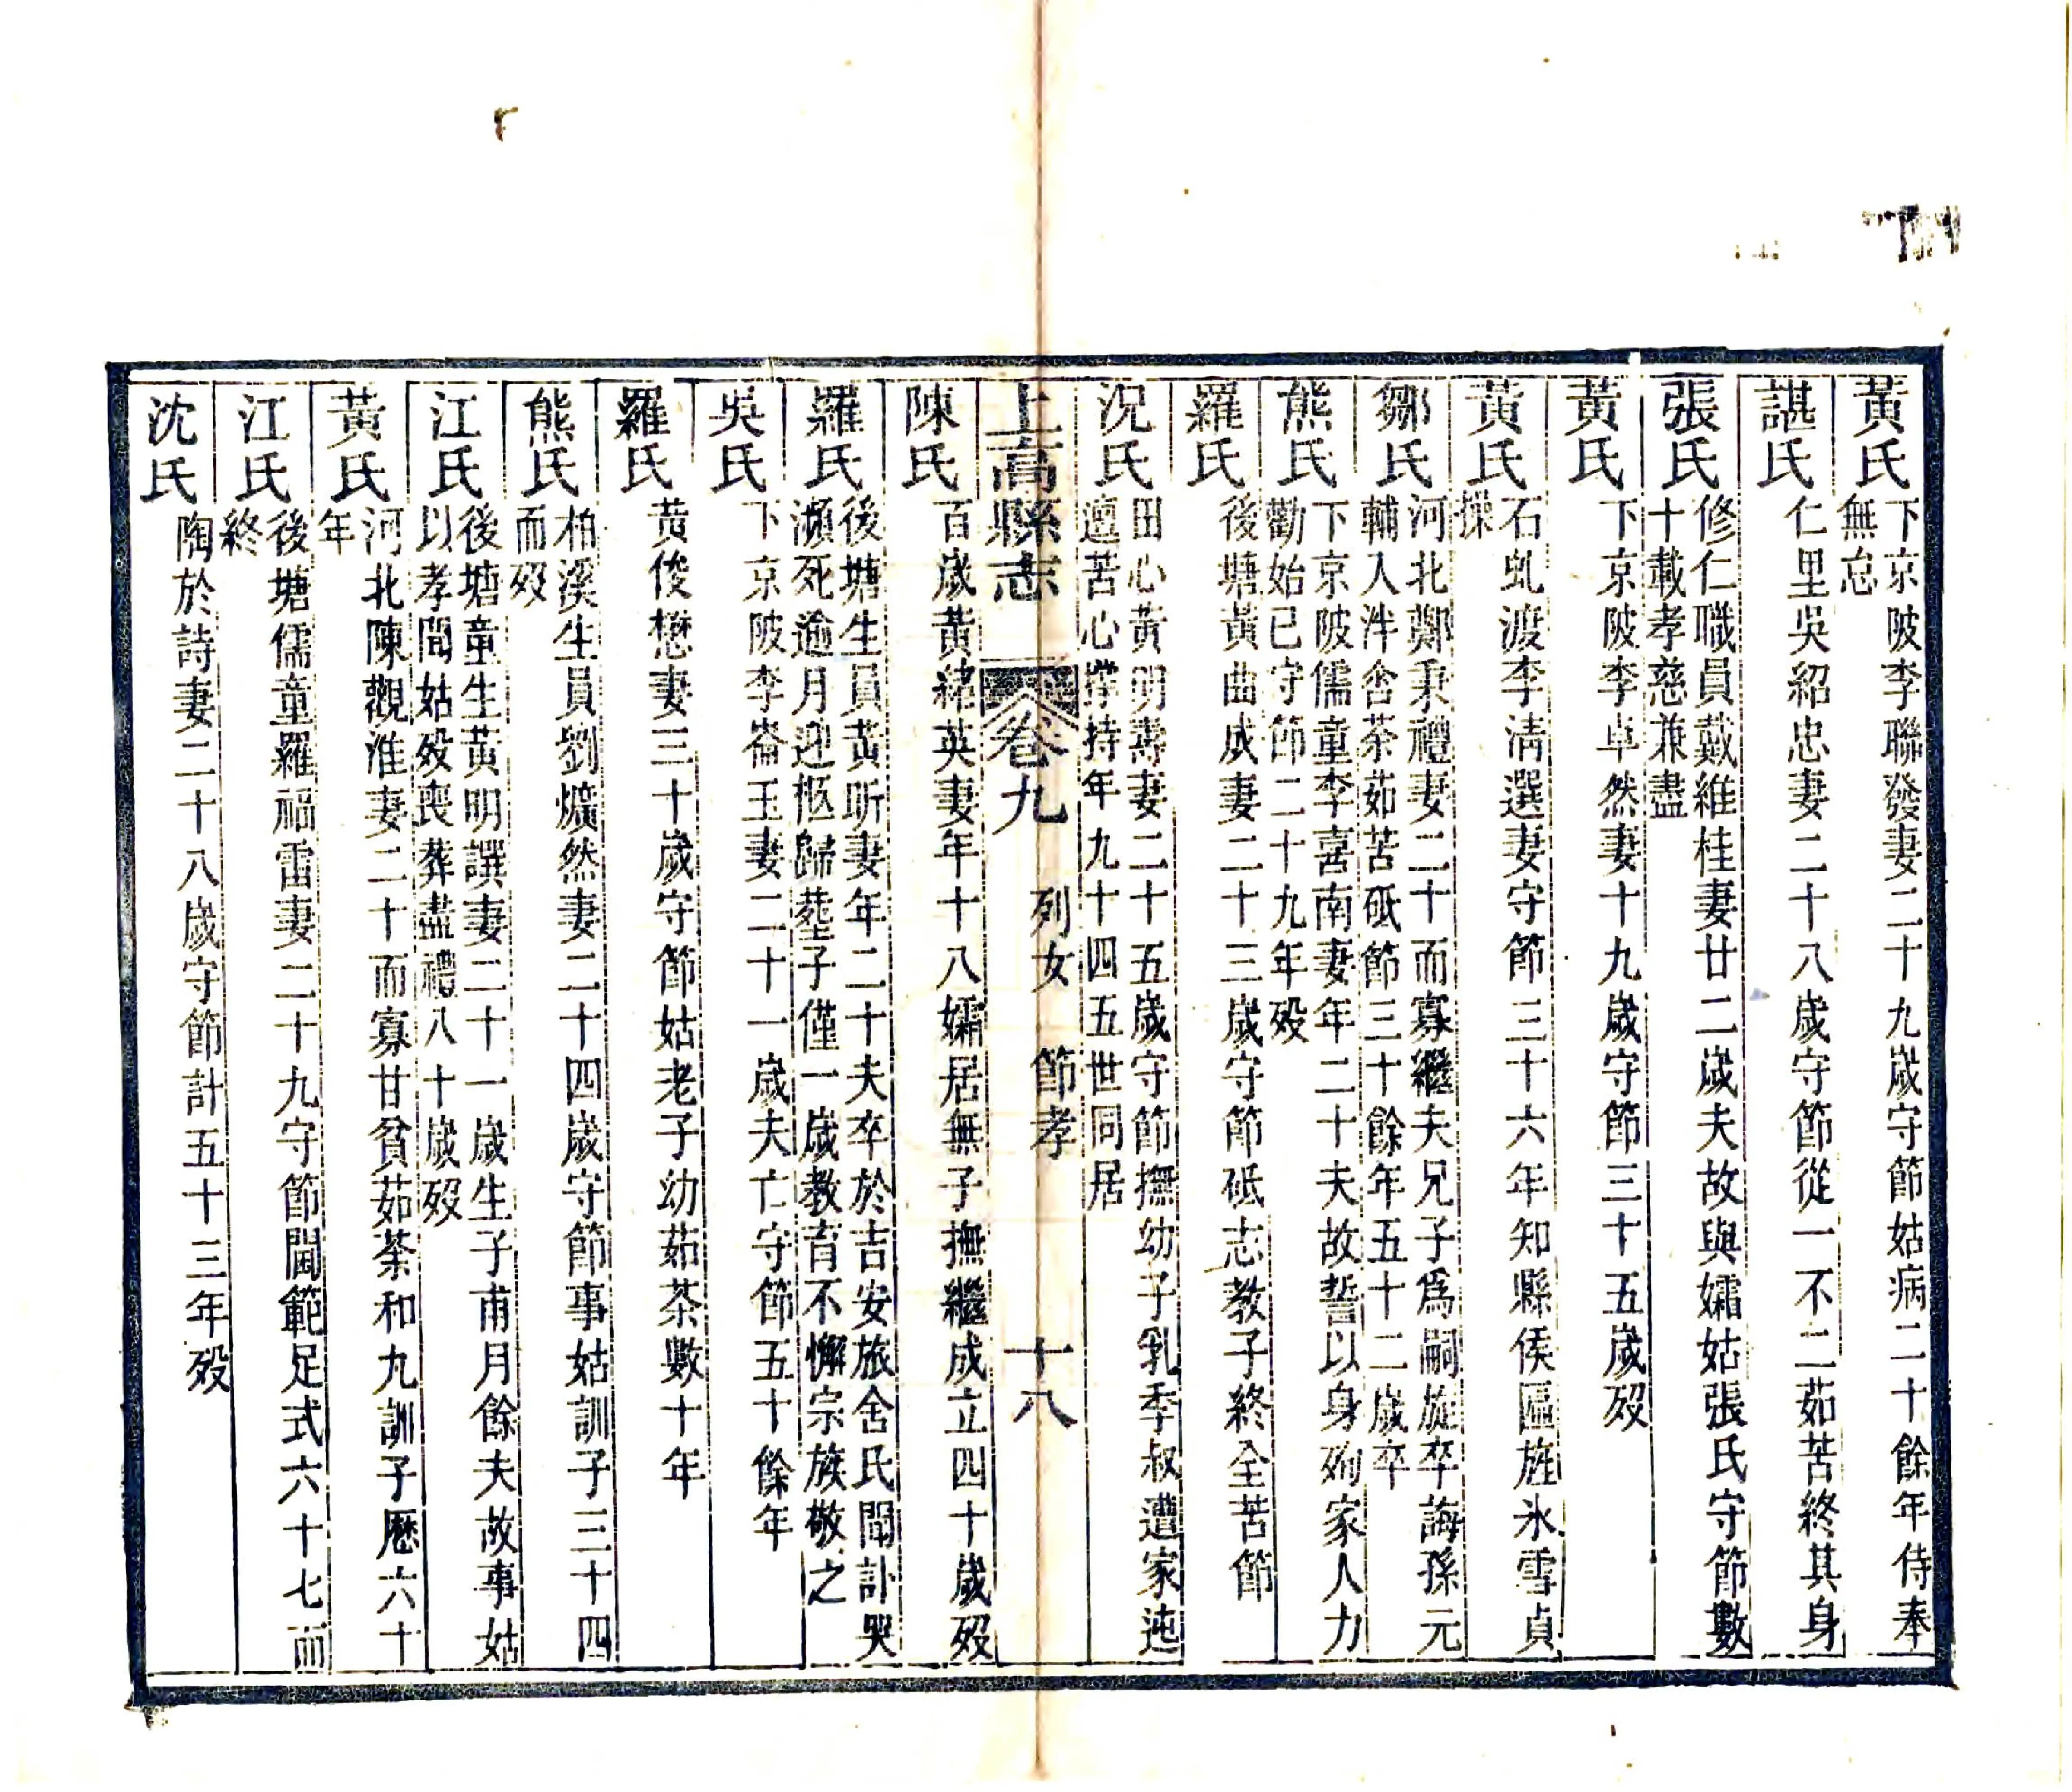 黃氏 下京陂李聯發妻二十九歲守節姑病二十餘年侍奉
無怠
諶氏 仁里吳紹忠妻二十八歲守節從一不二茹苦終其身
張氏 修仁職員戴維桂妻廿二歲夫故與孀姑張氏守節數
十載孝慈兼盡
黃氏 下京陂李卓然妻十九歲守節三十五歲歿
黃氏 石虬渡李清選妻守節三十六年知縣侯區旌氷雪貞
操
鄒氏 河北鄭秉禮妻二十而寡繼夫兄子爲嗣旋卒誨孫元
輔入泮含荼茹苦砥節三十餘年五十二歲卒
熊氏 下京陂儒童李喜南妻年二十夫故誓以身殉家人力
勸始已守節二十九年歿
羅氏 後塘黃曲成妻二十三歲守節砥志教子終全苦節
況氏 田心黃明壽妻二十五歲守節撫幼子乳季叔遭家迍
邅苦心撐持年九十四五世同居
上高縣志 卷九 列女 節孝 十八
陳氏 百歲黃緒英妻年十八孀居無子撫繼成立四十歲歿
羅氏 後塘生員黃昕妻年二十夫卒於吉安旅舍氏聞訃哭
瀕死逾月迎柩歸塟子僅一歲教育不懈宗族敬之
吳氏 下京陂李崙玉妻二十一歲夫亡守節五十餘年
羅氏 黃俊懋妻三十歲守節姑老子幼茹荼數十年
熊氏 柏溪生員劉爌然妻二十四歲守節事姑訓子三十四
而歿
江氏 後塘童生黃明譔妻二十一歲生子甫月餘夫故事姑
以孝聞姑歿喪葬盡禮八十歲歿
黃氏 河北陳觀淮妻二十而寡甘貧茹荼和九訓子歷六十
年
江氏 後塘儒童羅福雷妻二十九守節閫範足式六十七而
終
沈氏 陶於詩妻二十八歲守節計五十三年歿